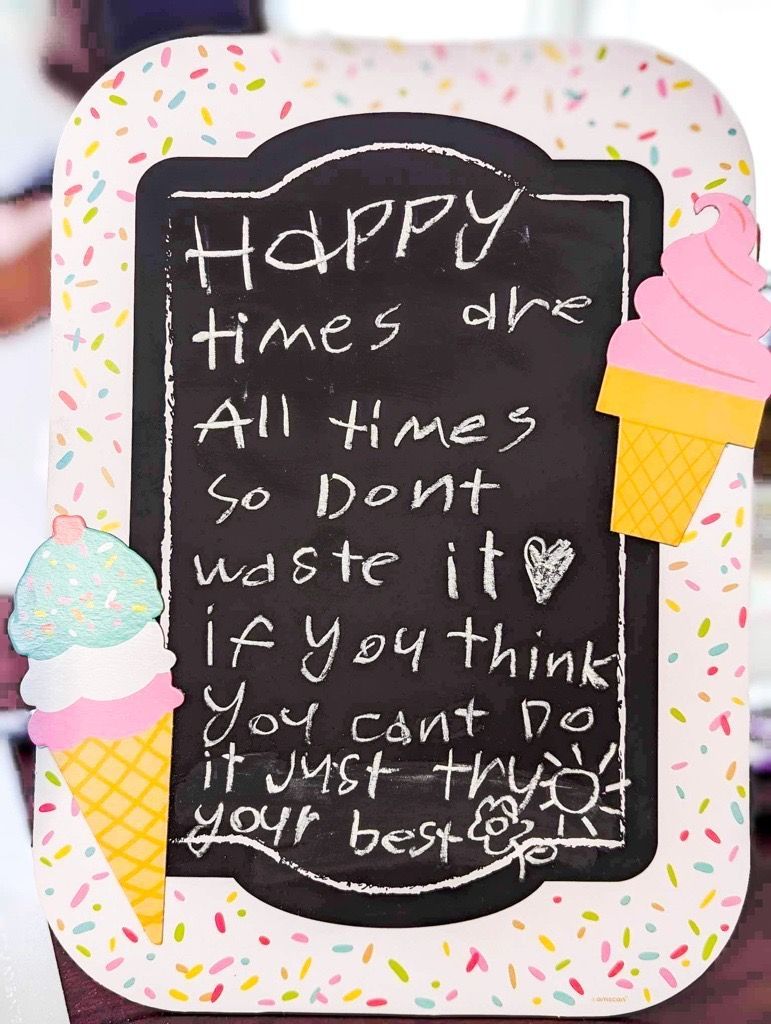 Happy
times are
All times
so Dont
waste it
if you think
you cant Do
it just try
your best
amscan